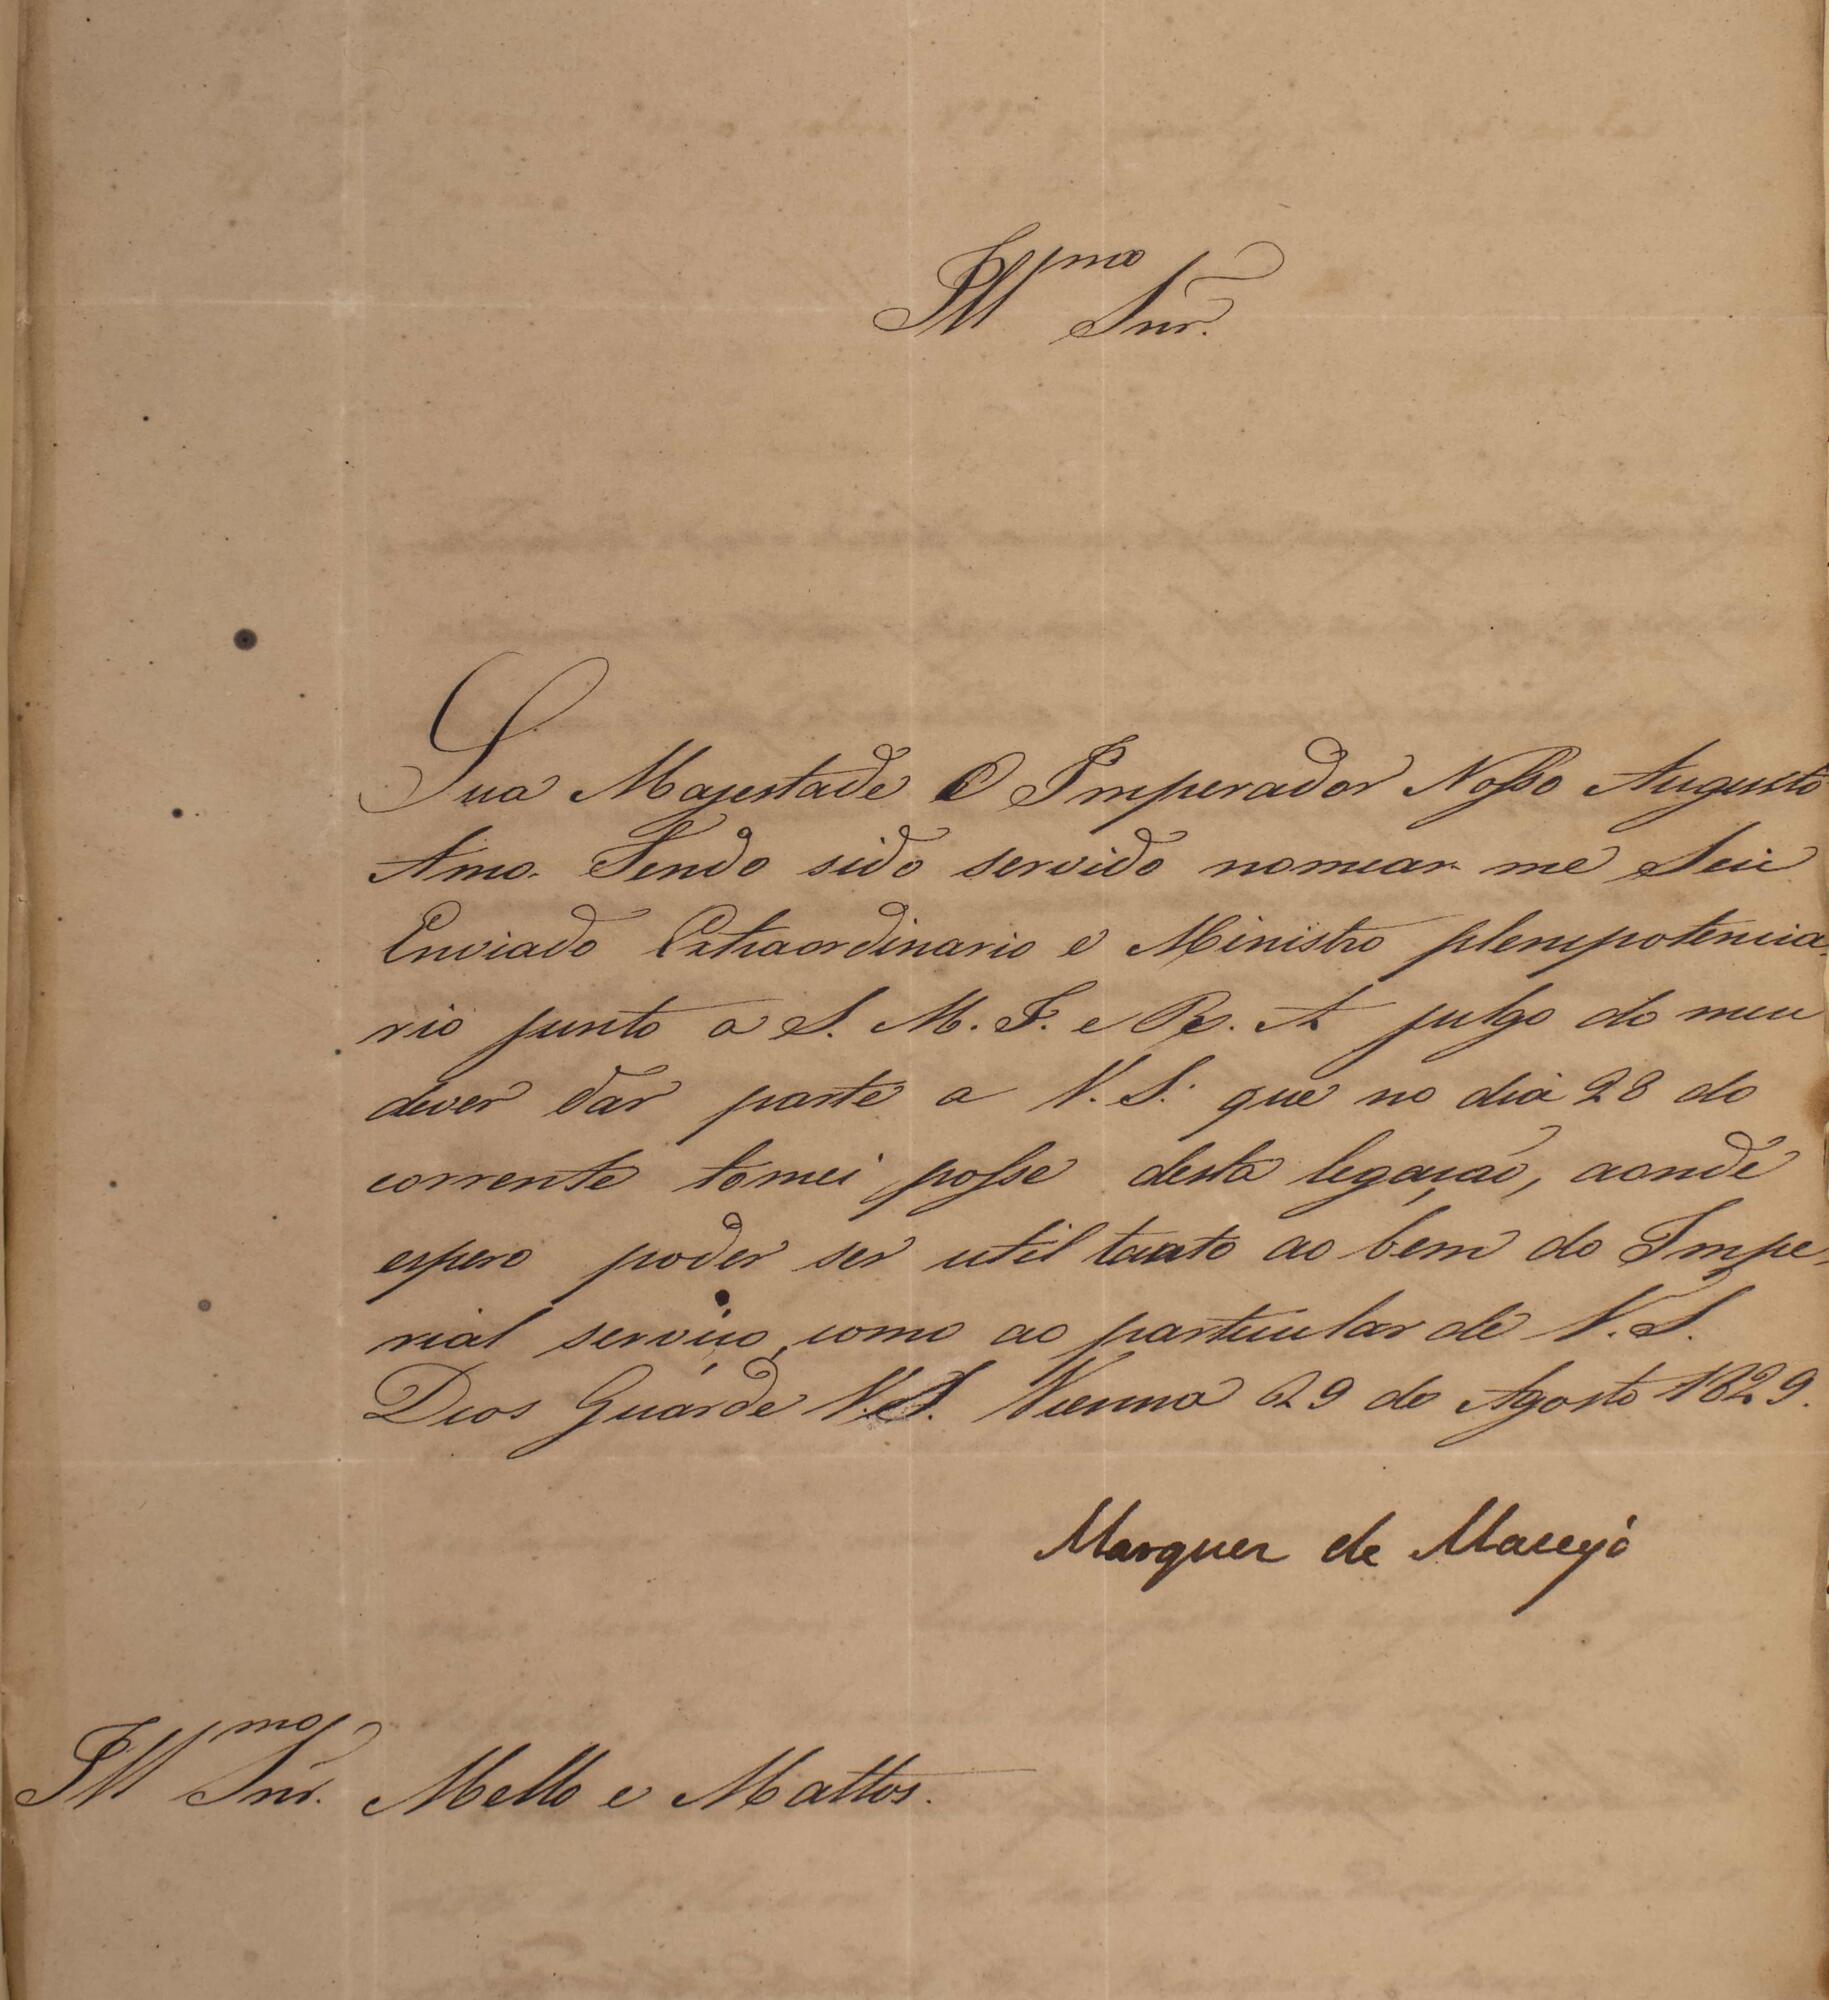 Ill^mo Snr.
Sua Majestade O Imperador Nosso Augusto
Amo. Tendo sido servido nomear me Seu
Enviado Extraordinario e Ministro plenipotencia-
rio junto a S. M. I. e R. A julgo do meu
dever dar parte a V. S. que no dia 28 do
corrente tomei posse desta legação, aonde
espero poder ser util tanto ao bem do Impe-
rial serviço, como ao particular de V. S.
Deos Guarde V. S. Vienna 29 de Agosto 1829.
Marquez de Maceyó
Ill^mo Snr. Mello e Mattos.